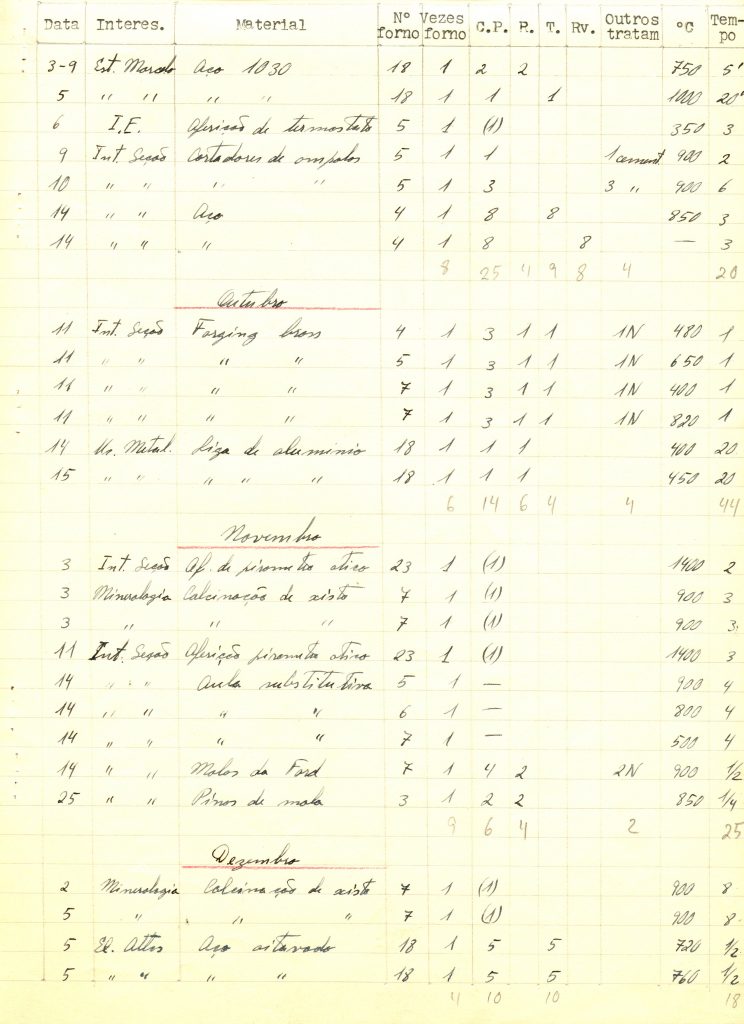 Data Interes. Material Nº forno Vezes forno C.P. R. T. Rv. Outros tratam ºC Tempo
3-9 Est. Marcelo Aço 1030 18 1 2 2 750 5'
5 " " " " 18 1 1 1 1000 20'
6 I.E. Aferição de termostato 5 1 (1) 350 3
9 Int Seção Cortadores de 5 1 1 1 cement. 900 2
10 " " " " 5 1 3 3 " 900 6
14 " " Aço 4 1 8 8 850 3
14 " " " 4 1 8 8 — 3
8 25 4 9 8 4 20
Outubro
11 Int. Seção Forging brass 4 1 3 1 1 1N 480 1
11 " " " " 5 1 3 1 1 1N 650 1
11 " " " " 7 1 3 1 1 1N 400 1
11 " " " " 7 1 3 1 1 1N 820 1
14 Metal. Liga de aluminio 18 1 1 1 400 20
15 " " " " " 18 1 1 1 450 20
6 14 6 4 4 44
Novembro
3 Int. Seção Af. de pirometro otico 23 1 (1) 1400 2
3 Minerologia Calcinação de xisto 7 1 (1) 900 3
3 " " " 7 1 (1) 900 3
11 Int. Seção Aferição pirometro otico 23 1 (1) 1400 3
14 " " Aula substitutiva 5 1 — 900 4
14 " " " " 6 1 — 800 4
14 " " " " 7 1 — 500 4
14 " " Molas da Ford 7 1 4 2 2N 900 1/2
25 " " Pinos de mola 3 1 2 2 850 1/4
9 6 4 2 25
Dezembro
2 Minerologia Calcinação de xisto 7 1 (1) 900 8
5 " " " 7 1 (1) 900 8
5 El. Attis Aço oitavado 18 1 5 5 720 1/2
5 " " " " 18 1 5 5 760 1/2
4 10 10 18